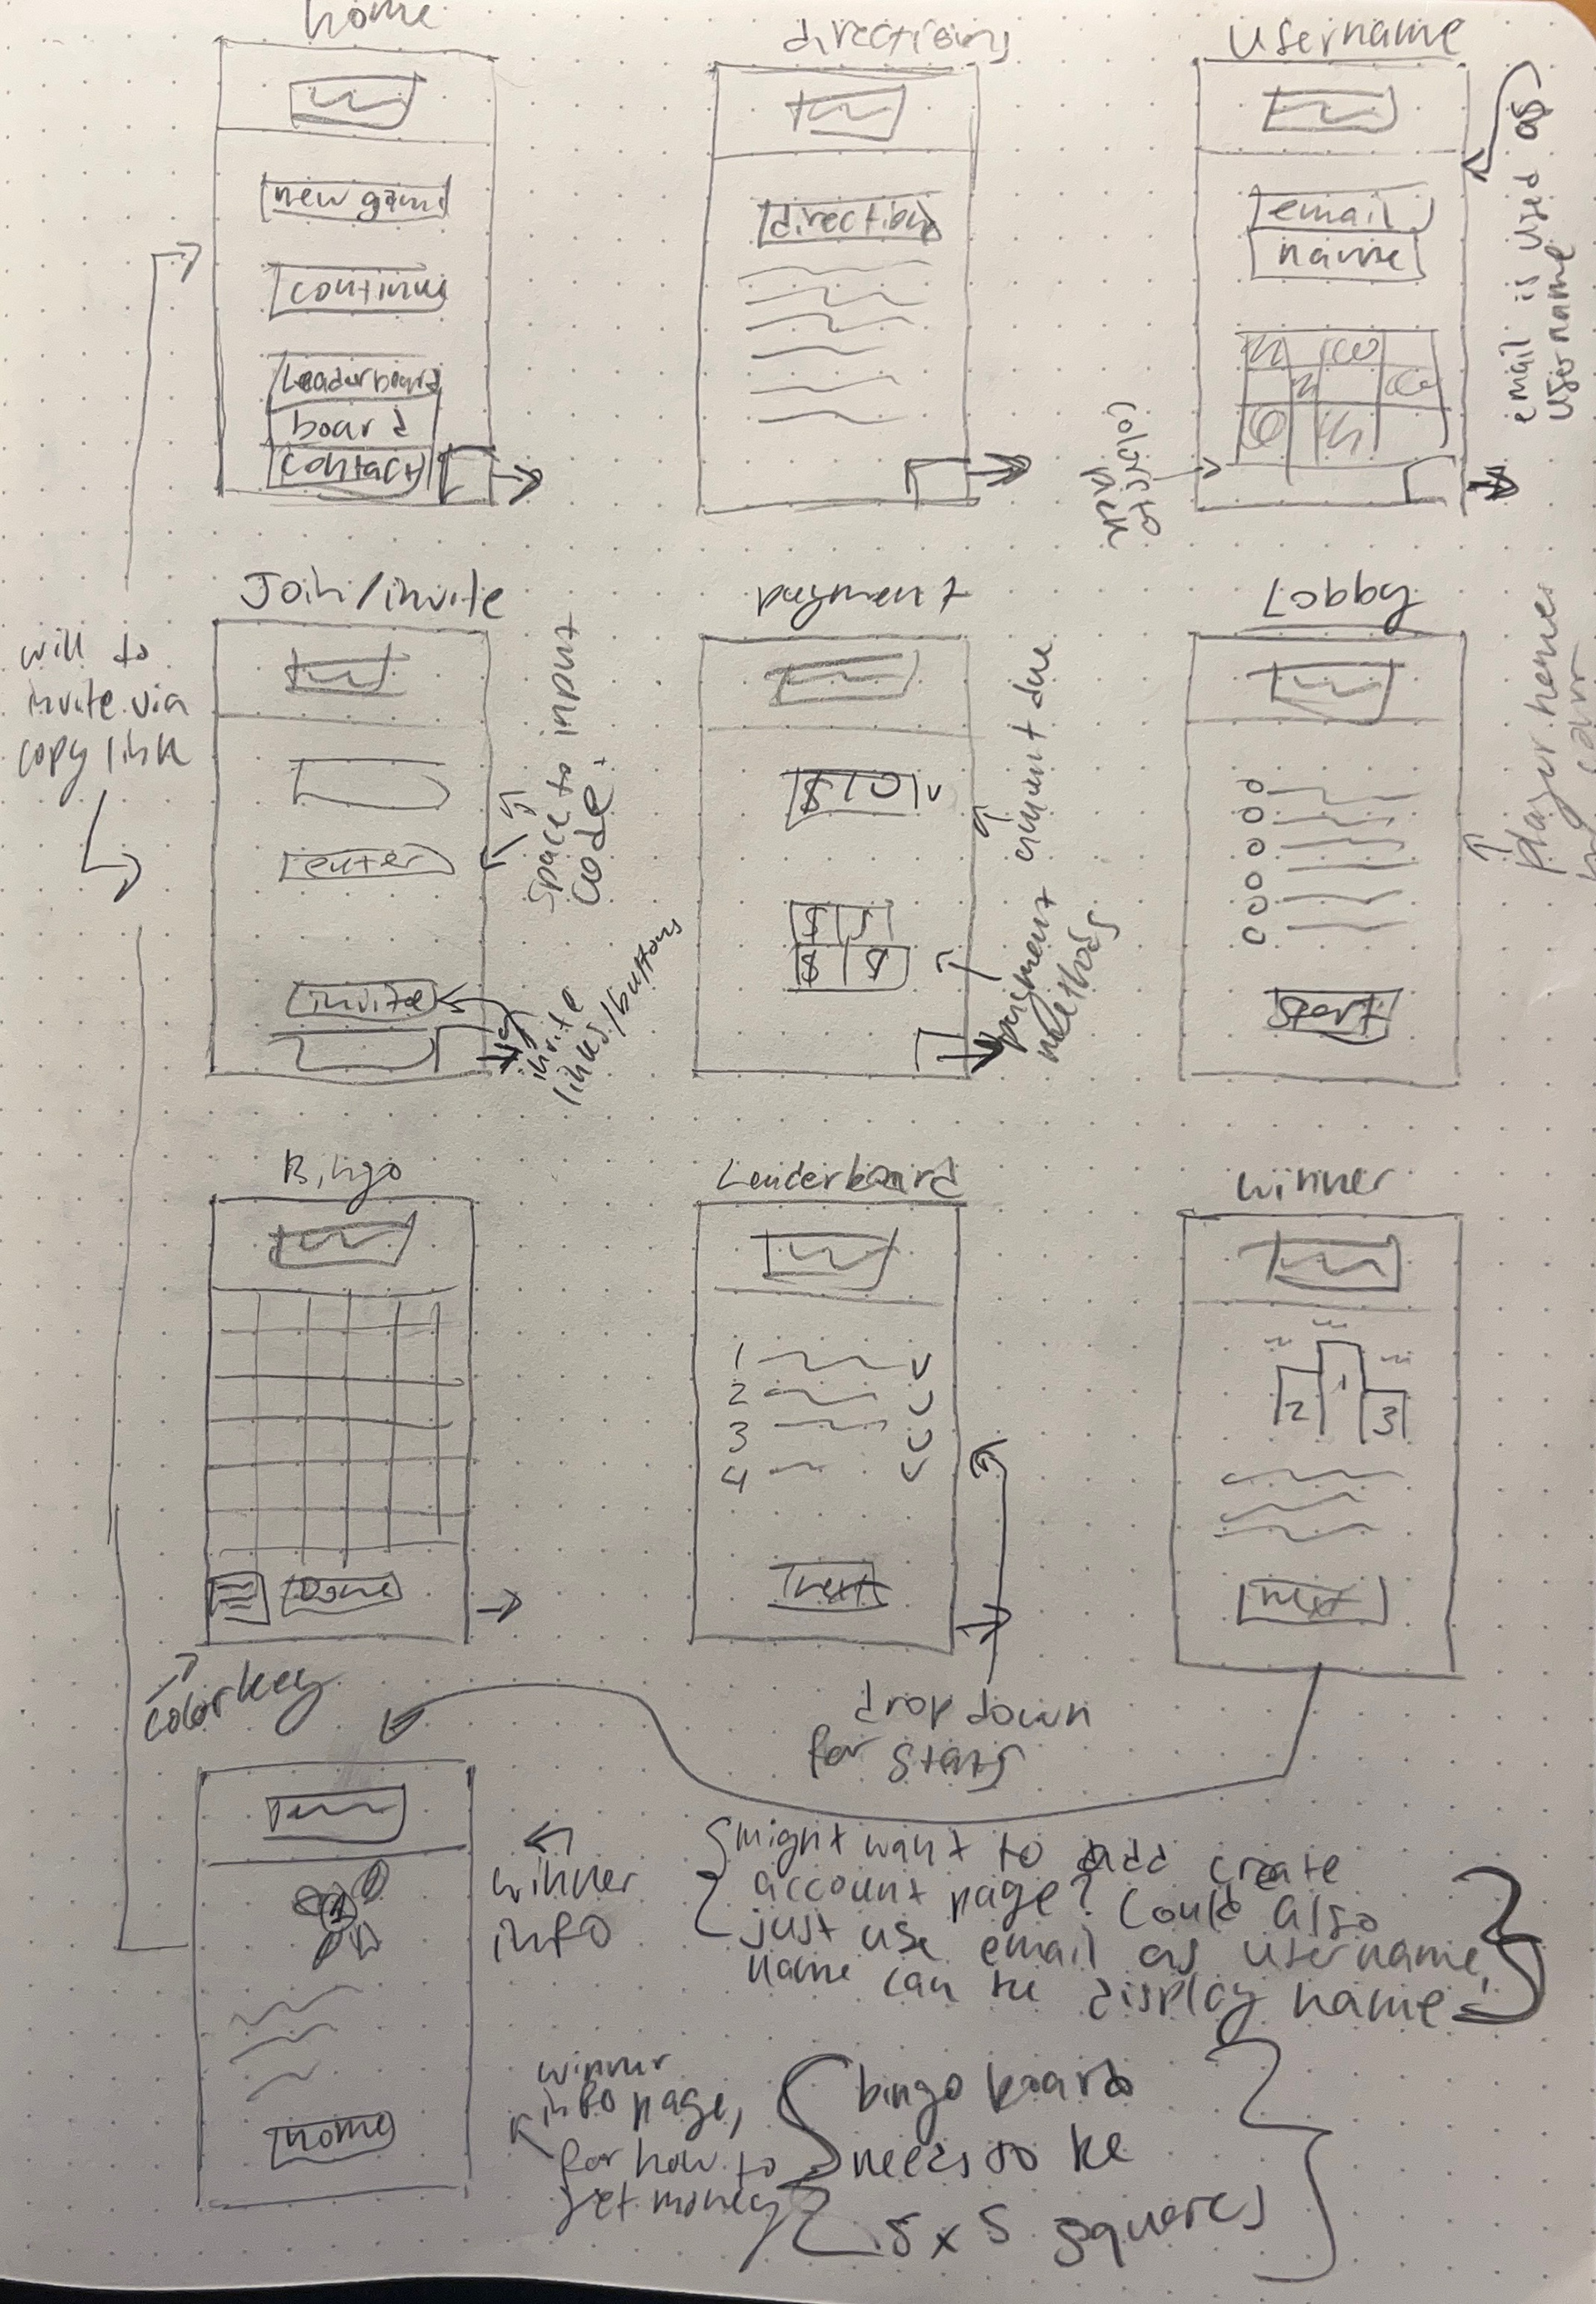 home
new game
continue
Leaderboard
board
contact
directions
directions
Username
email
name
email is used as
username
colors to
pick
Join/invite
enter
invite
will to
invite via
copy link
Space to input
code
invite
links/buttons
payment
$10
$ $
$ $
amount due
payment
methods
Lobby
start
Player names
Bingo
Done
color key
Leaderboard
1
2
3
4
next
drop down
for stats
winner
2 1 3
next
home
winner
info
might want to add create
account page? Could also
just use email as username,
name can be display name
winner
info page,
for how to
get money
bingo board
needs to be
5 x 5 squares